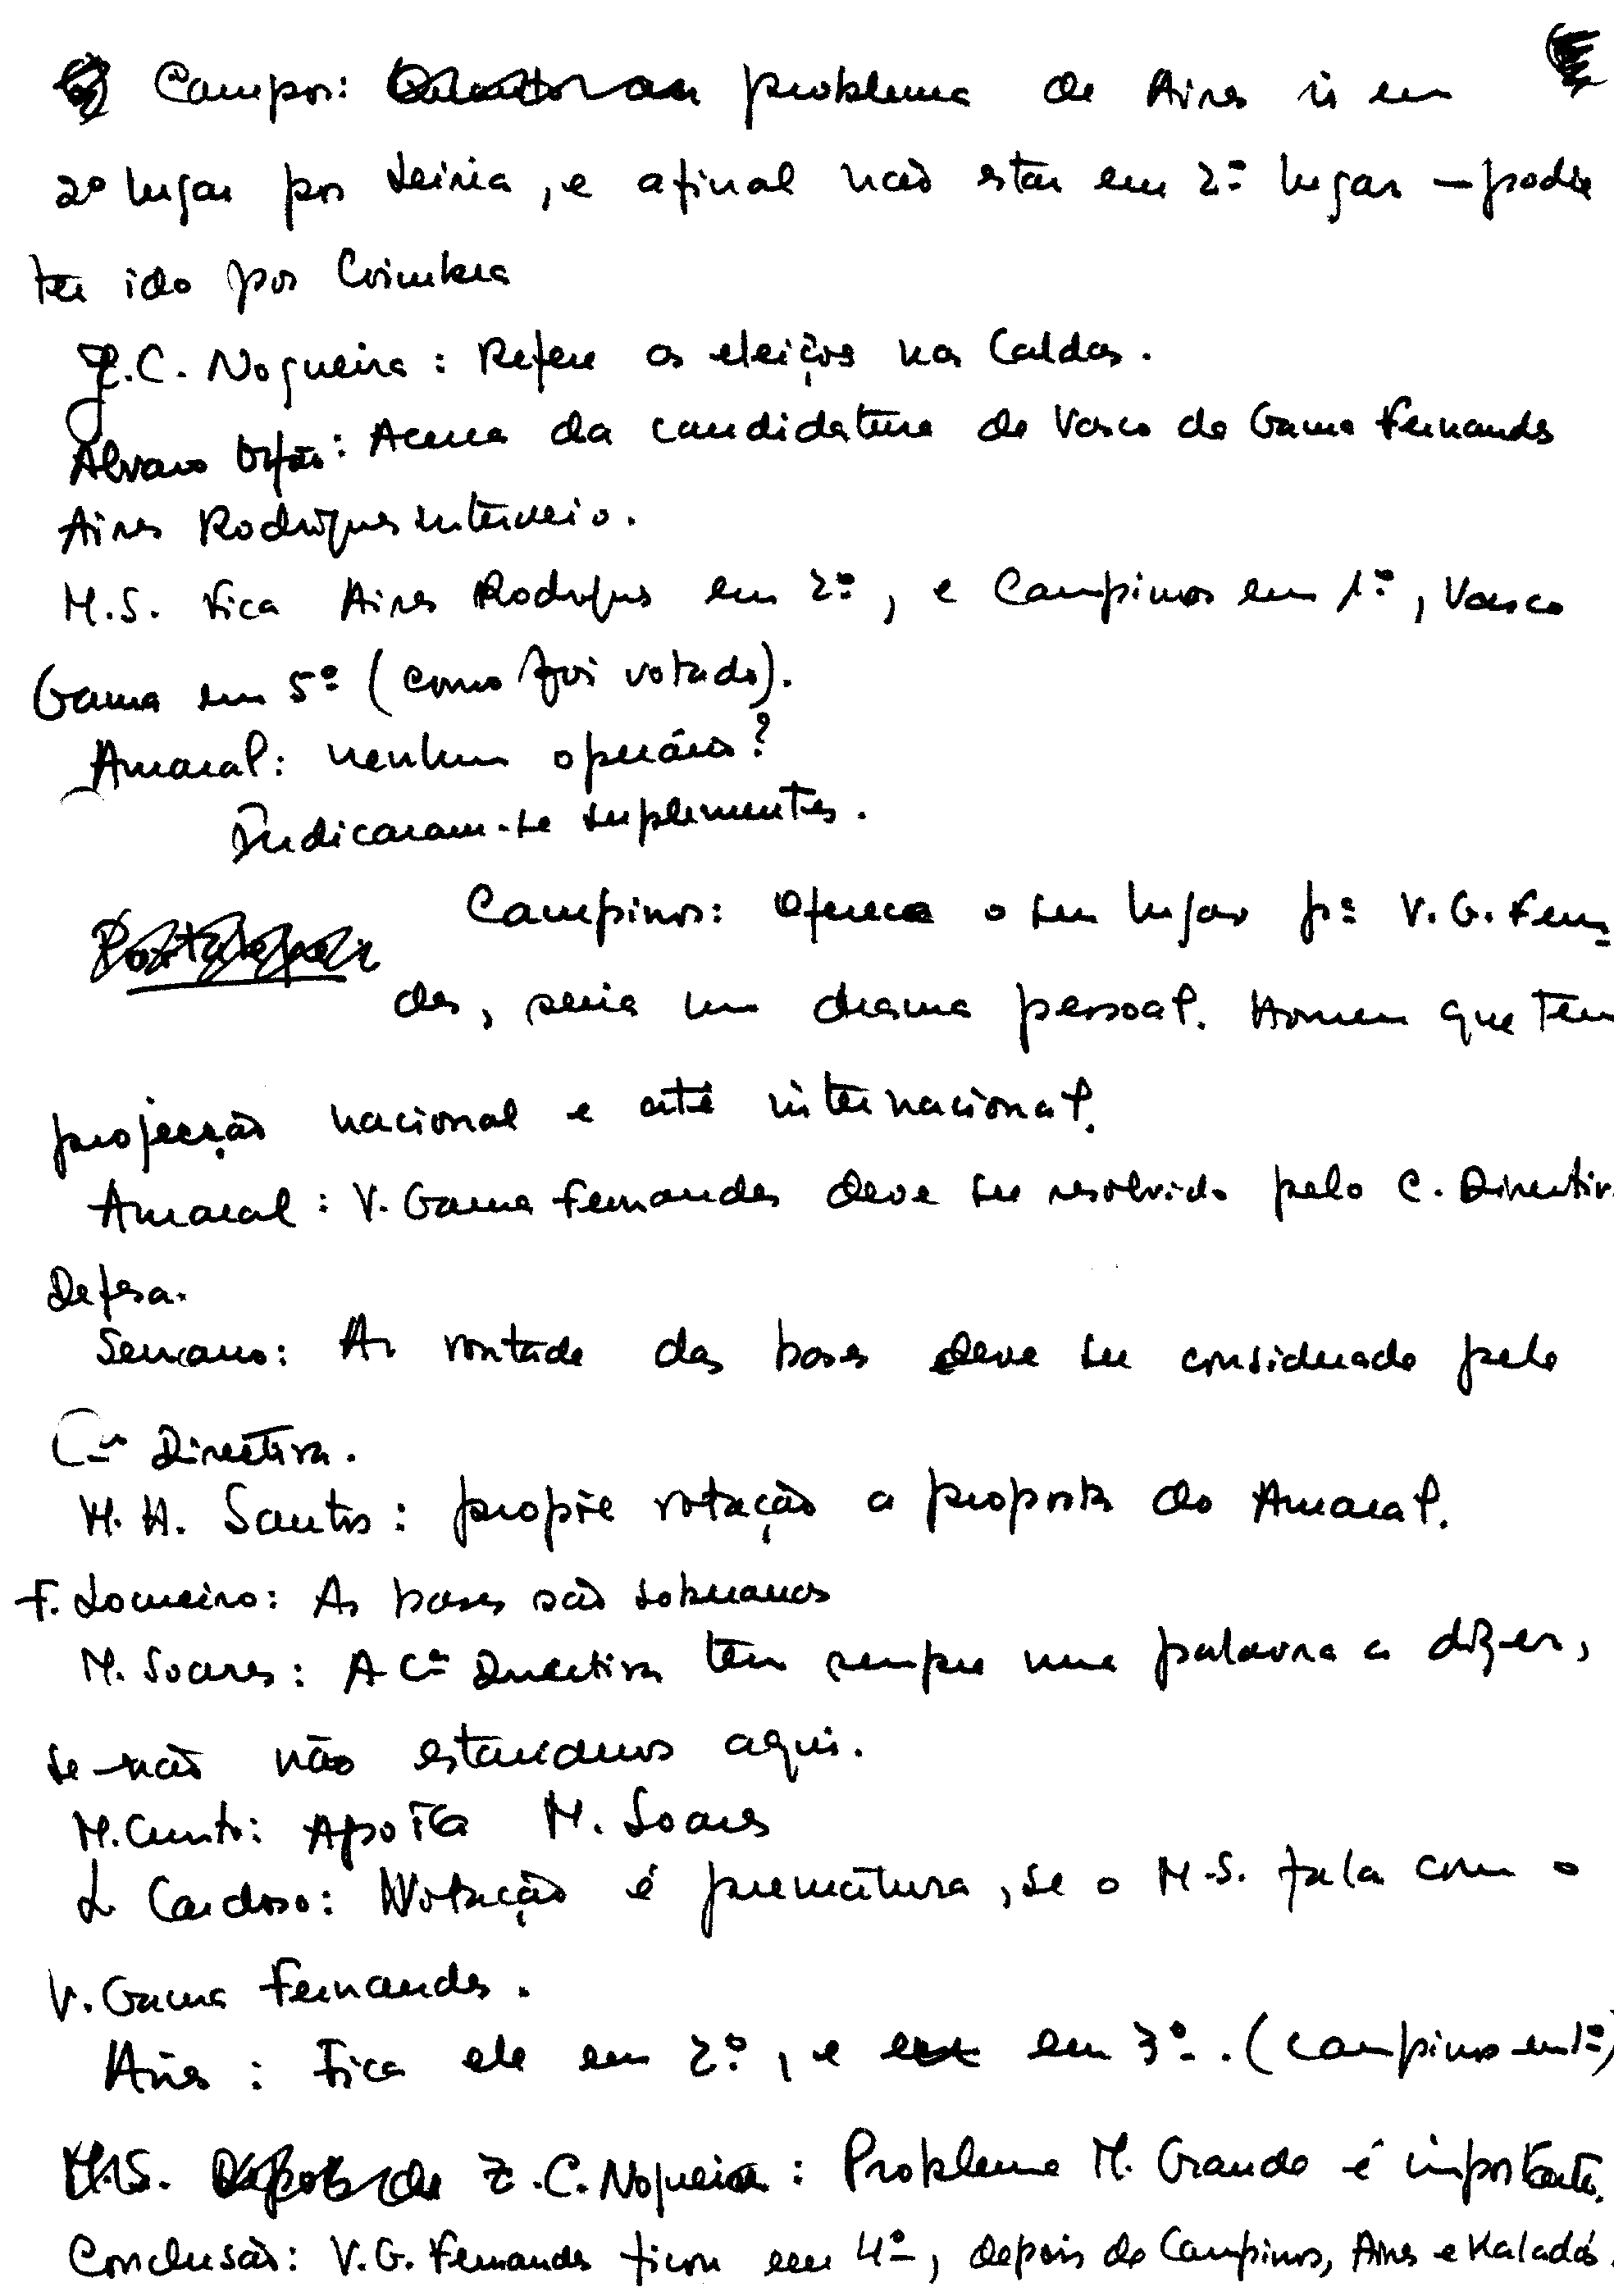 Campos: problema de Aires ir em
2º lugar por Leiria, e afinal não estar em 2º lugar – podia
ter ido por Coimbra
J.C. Nogueira: Refere as eleições nas Caldas.
Álvaro Órfão: Acerca da candidatura de Vasco da Gama Fernandes
Aires Rodrigues interveio.
M.S. Fica Aires Rodrigues em 2º, e Campinos em 1º, Vasco
Gama em 5º (como foi votado).
Amaral: nenhum operário?
Indicaram-se suplementes.
Campinos: oferece o seu lugar pª V.G. Fernan-
des, seria um drama pessoal. Homem que tem
projecção nacional e até internacional.
Amaral: V. Gama Fernandes deve ser resolvido pelo C. Directiv.
Defesa.
Serrano: A vontade das bases deve ser considerada pela
Cª Directiva.
M.H. Santos: propõe votação a proposta do Amaral.
F. Loureiro: As bases são soberanas
M. Soares: A Cª Directiva tem sempre uma palavra a dizer,
se-não não estaríamos aqui.
M. Cunto: Apoia M. Soares
L Cardoso: Votação é prematura, se o M.S. fala com o
V. Gama Fernandes.
Aires: Fica ele em 2º, e em 3º. (Campinos em 1º)
M.S. Z.C. Nogueira: Problema M. Grande é importante.
Conclusão: V.G. Fernandes ficou em 4º, depois de Campinos, Aires e Kalidás.